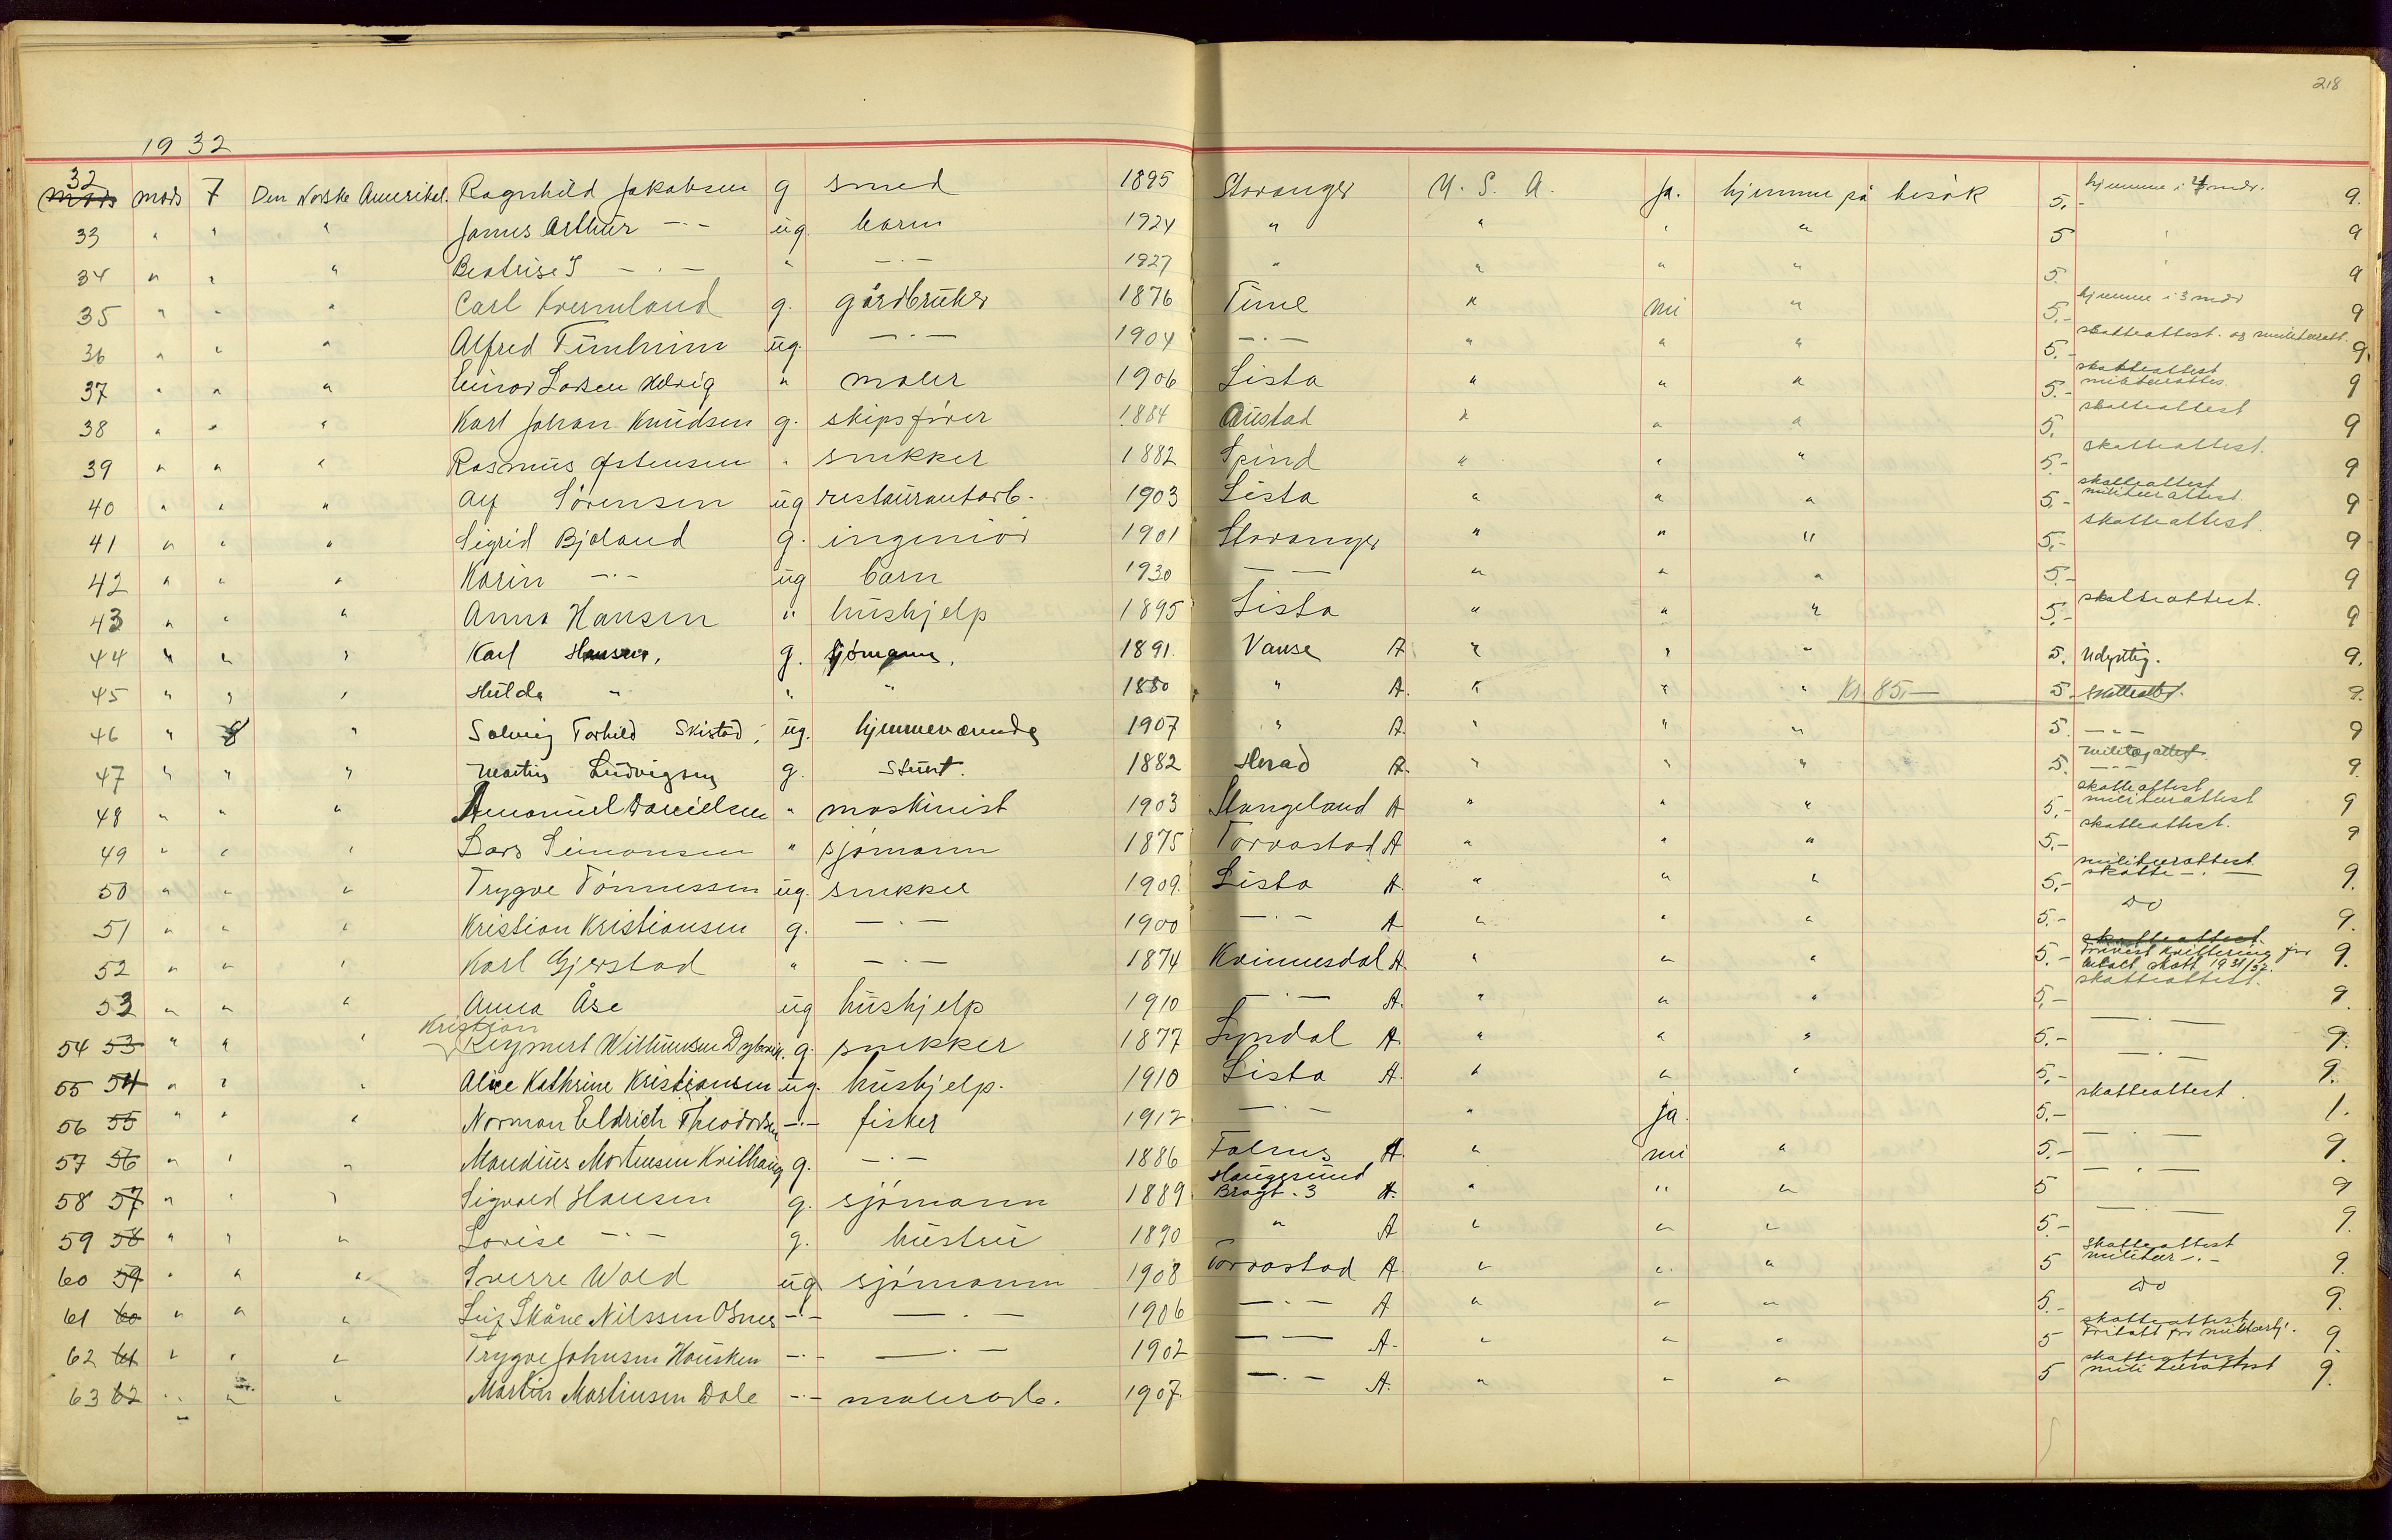 218
1932
32 mars mars 7 Den Norske Amerikal. Ragnhild Jakobsen g smed 1895 Stavanger U. S. A. Ja. hjemme på besök 5.- hjemme i 4 mdr. 9.
33 " " " James Arthur -·- ug. barn 1924 " " " " 5 " 9
34 " " " Beatrise S -·- " -·- 1927 " " " " 5. " 9
35 " " " Carl Kvernland g. gårdbruker 1876 Time " nei " 5.- hjemme i 3 mdr 9
36 " " " Alfred Tunheim ug. -·- 1904 -·- " " " 5.- skatteattest. og militæratt. 9.
37 " " " Einar Larsen Helvig " maler 1906 Lista " " " 5.- skatteattest militærattes. 9
38 " " " Karl Johan Knudsen g. skipsfører 1884 Austad " " " 5. skatteattest 9
39 " " " Rasmus Østensen " snekker 1882 Spind " " " 5.- skatteattest. 9
40 " " " Alf Sörensen ug restaurantarb. 1903 Lista " " " 5.- skatteattest militærattest. 9
41 " " " Sigrid Bjoland g. ingeniör 1901 Stavanger " " " 5.- skatteattest. 9
42 " " " Karin -·- ug barn 1930 — — " " " 5.- 9
43 " " " Anna Hansen " hushjelp 1895 Lista " " " 5.- skatteattest. 9
44 " " " Karl Hansen, g. sjömann, 1891. Vanse A " " " 5. Udyktig. 9.
45 " " " Hilda " " " 1880 " A. " " " Kr. 85.- 5. skatteatt. 9.
46 " 8 " Solveig Torhild Skistad, ug. hjemmeværende 1907 " A. " " " 5. -"- 9
47 " " " Martin Ludvigsen g. Stuert. 1882 Herad A. " " " 5. militærattest -"- 9.
48 " " " Amanuel Danielsen " maskinist 1903 Stangeland A " " " 5.- skatteattest militærattest 9
49 " " " Lars Simonsen " sjömann 1875 Torvastad A " " " 5.- skatteattest. 9
50 " " " Trygve Tönnessen ug. snekker 1909. Lista A " " " 5.- militærattest skatte -·- 9.
51 " " " Kristian Kristiansen g. -·- 1900 -·- A " " " 5.- do 9.
52 " " " Karl Gjerstad " -·- 1874 Kvinnesdal A " " " 5.- skatteattest forevist kvittering for betalt skatt 1931/32. 9.
53 " " " Anna Åse ug hushjelp 1910 -·- A. " " " 5.- skatteattest. 9
Kristian
54 53 " " " Reymert Willumsen g. snekker 1877 Lyndal A " " " 5.- -·- 9.
55 54 " " " Alice Kathrine Kristiansen ug. hushjelp. 1910 Lista A. " " " 5.- -·- 9.
56 55 " " " Norman Eldrich Theodorsen -·- fisker 1912 -·- " ja. 5.- skatteattest. 1.
57 56 " " " Mandius Mortensen Kvilhaug g. -·- 1886 Falnes A. " nei " 5.- -·- 9.
58 57 " " " Sigvald Hansen g. sjömann 1889 Haugesund Bragt. 3 A. " " " 5 -·- 9
59 58 " " " Lovise -·- g. hustru 1890 " A " " " 5.- -·- 9.
60 59 " " " Sverre Wold ug sjömann 1908 Torvastad A " " " 5 Skatteattest militær -·- 9.
61 60 " " " Leif Skåne Nilssen Osnes -·- -·- 1906 -·- A " " " 5.- do 9.
62 61 " " " Trygve Johnsen Hausken -·- -·- 1902 — — A. " " " 5 skatteattest Fritatt for militærtj. 9.
63 62 " " " Martin Martinsen Dale -·- malerarb. 1907. -·- A. " " " 5 skatteattest militærattest 9.